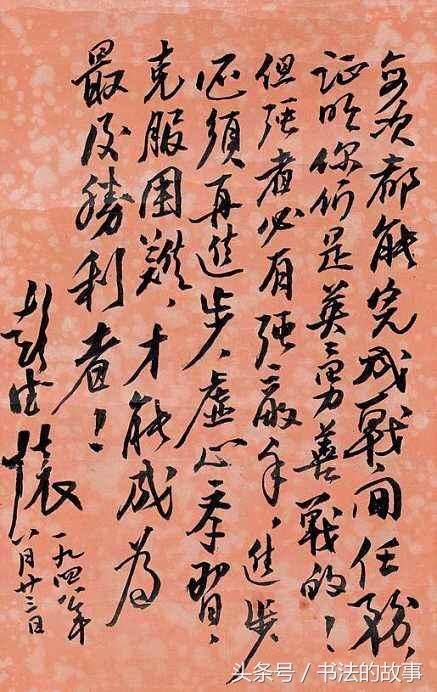 每次都能完成戰间任務，
证明你们是英勇善戰的！
但强者必有强敵手，進步
还须再進步，虚心学習，
克服困難，才能成为
最后勝利者！
彭德懷
一九四八年
八月廿三日
头条号 / 书法的故事